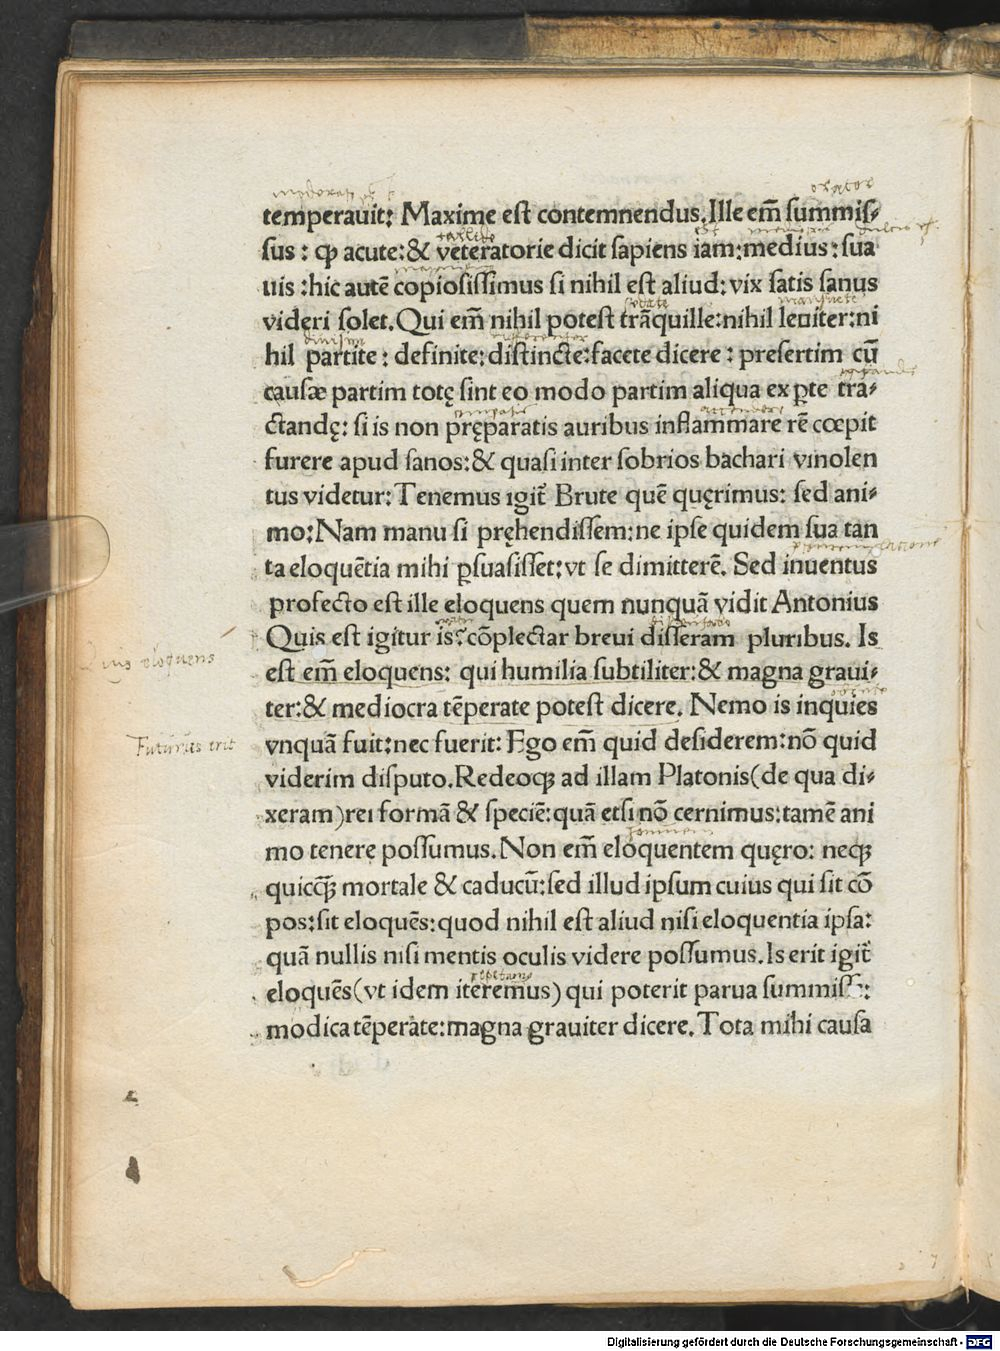 orator
temperauit: Maxime est contemnendus. Ille em̄ summis⸗
sus : ꝙ acute: & veteratorie dicit sapiens iam: medius : sua
uis : hic autē copiosissimus si nihil est aliud: vix satis sanus
videri solet. Qui em̄ nihil potest trāquille: nihil leuiter: ni
hil partite : definite: distincte: facete dicere : presertim cū
causæ partim totę sint eo modo partim aliqua ex ꝑte tra⸗
ctandę: si is non pręparatis auribus inflammare rē cœpit
furere apud sanos: & quasi inter sobrios bachari vinolen
tus videtur: Tenemus igit̃ Brute quē quęrimus: sed ani⸗
mo: Nam manu si pręhendissem: ne ipse quidem sua tan
ta eloquētia mihi ꝑsuasisset: vt se dimitterē. Sed inuentus
profecto est ille eloquens quem nunquā vidit Antonius
Quis est igitur is? cōplectar breui disseram pluribus. Is
Quis eloquens
est em̄ eloquens: qui humilia subtiliter: & magna graui⸗
ter: & mediocra tēperate potest dicere. Nemo is inquies
Futurus erit
vnquā fuit: nec fuerit: Ego em̄ quid desiderem: nō quid
viderim disputo. Redeoqꝫ ad illam Platonis (de qua di⸗
xeram) rei formā & speciē: quā etsi nō cernimus: tamē ani
mo tenere possumus. Non em̄ eloquentem quęro: neqꝫ
quicq̄ꝫ mortale & caducū: sed illud ipsum cuius qui sit cō
pos: sit eloquēs: quod nihil est aliud nisi eloquentia ipsa:
quā nullis nisi mentis oculis videre possumus. Is erit igit̃
eloquēs (vt idem iteremus) qui poterit parua summisse:
modica tēperate: magna grauiter dicere. Tota mihi causa
Digitalisierung gefördert durch die Deutsche Forschungsgemeinschaft - DFG